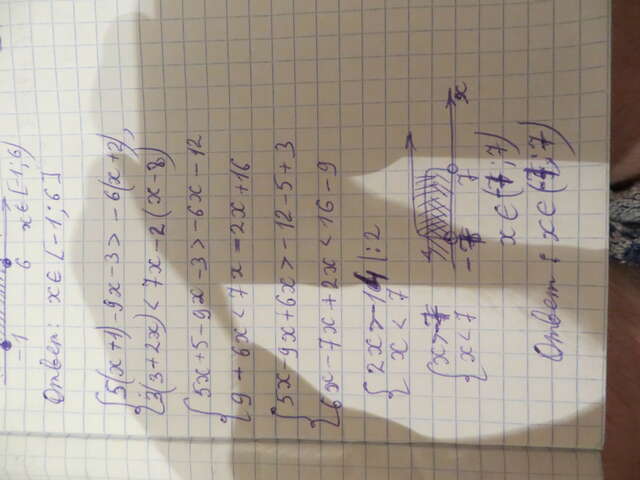 -1 6 x∈[-1;6)
Ответ: x∈[-1;6]
{5(x+1)-9x-3>-6(x+2),
{3(3+2x)<7x-2(x-8)
{5x+5-9x-3>-6x-12
{9+6x<7x=2x+16
{5x-9x+6x>-12-5+3
{6x-7x+2x<16-9
{2x>-14|:2
{x<7
{x>-7
{x<7
-7 7 x
x∈(-7;7)
Ответ: x∈(-7;7)